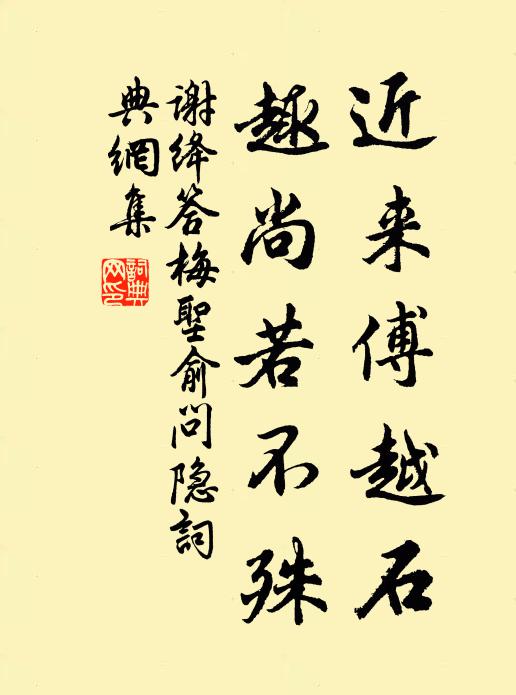 近来傅越石
趣尚若不殊
谢绛答梅聖俞问隐詞
典網集
詞典网印